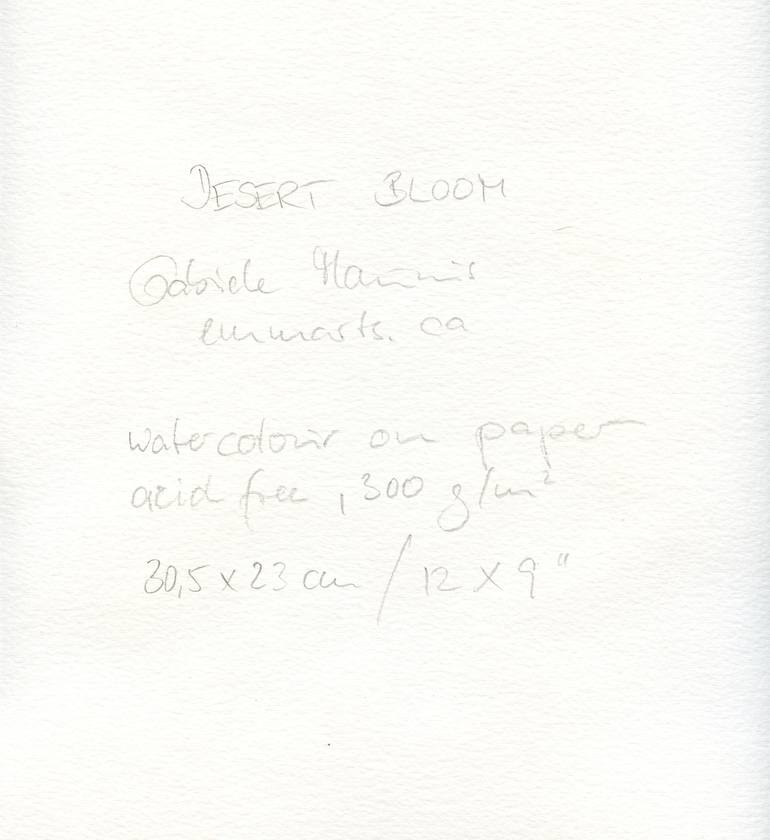 DESERT BLOOM
Gabriele
emmarts.ca
watercolour on paper
acid free, 300 g/m²
30,5 x 23 cm / 12 X 9"